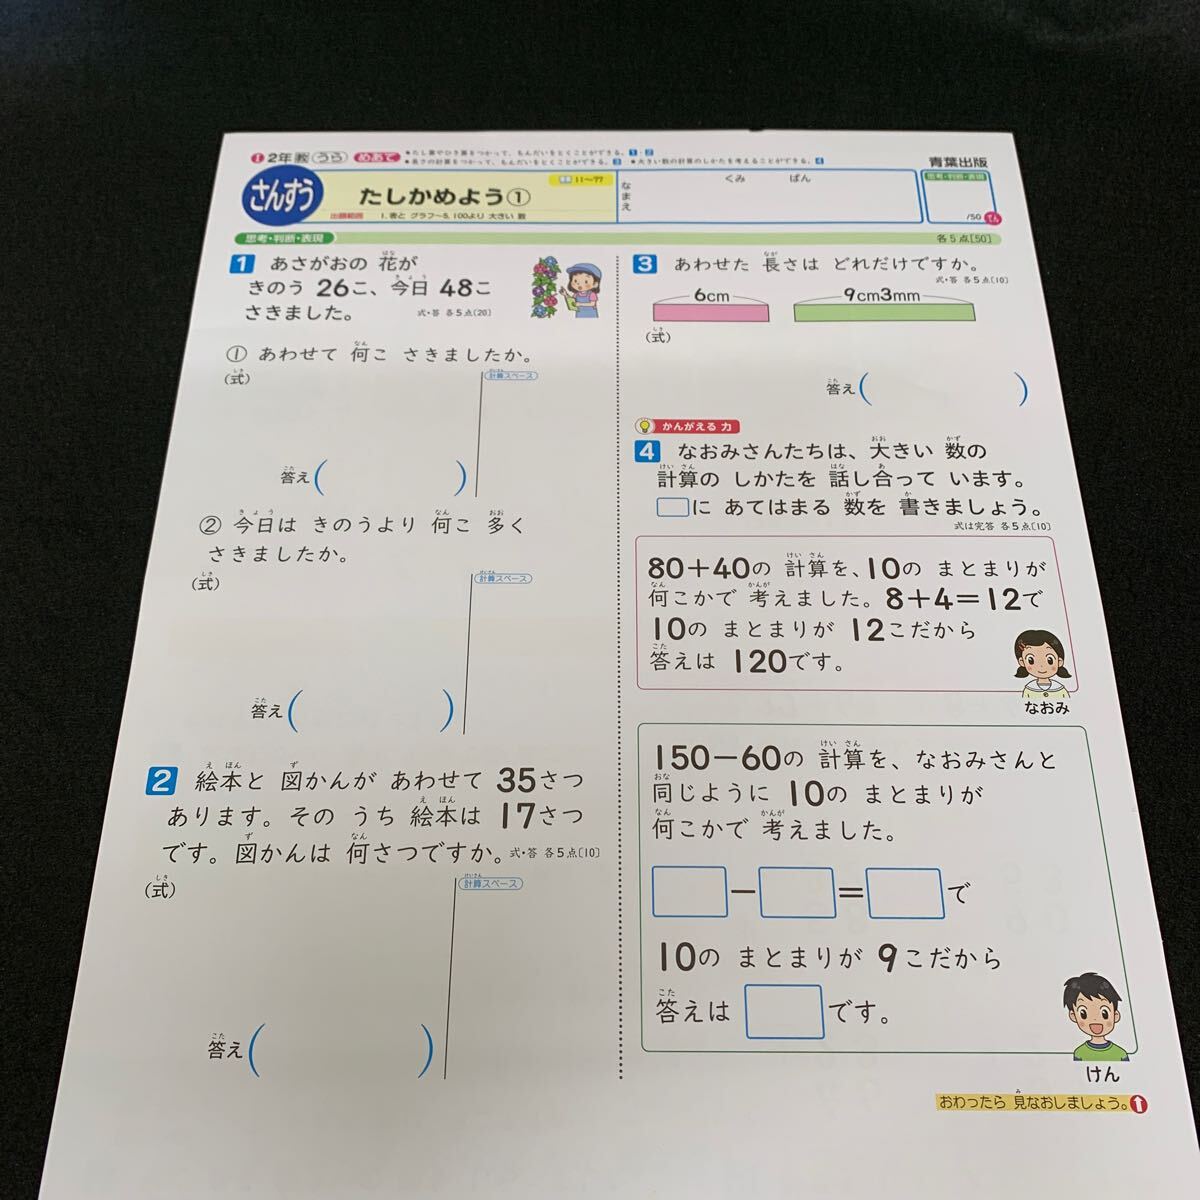 1 2年 教 うら めあて
★たし算やひき算をつかって、もんだいをとくことができる。 1・2
★長さの計算をつかって、もんだいをとくことができる。 3 ★大きい数の計算のしかたを考えることができる。 4
青葉出版
さんすう
たしかめよう①
11~77
出題範囲 1.表と グラフ~5.100より 大きい 数
なまえ
くみ ばん
思考・判断・表現
/50 てん
思考・判断・表現
各5点[50]
1 あさがおの 花が
きのう 26こ、今日 48こ
さきました。 式・答 各5点[20]
① あわせて 何こ さきましたか。
(式)
計算スペース
答え( )
② 今日は きのうより 何こ 多く
さきましたか。
(式)
計算スペース
答え( )
2 絵本と 図かんが あわせて 35さつ
あります。その うち 絵本は 17さつ
です。図かんは 何さつですか。 式・答 各5点[10]
(式)
計算スペース
答え( )
3 あわせた 長さは どれだけですか。
式・答 各5点[10]
6cm 9cm3mm
(式)
答え( )
かんがえる 力
4 なおみさんたちは、大きい 数の
計算の しかたを 話し合って います。
□に あてはまる 数を 書きましょう。
式は完答 各5点[10]
80+40の 計算を、10の まとまりが
何こかで 考えました。8+4=12で
10の まとまりが 12こだから
答えは 120です。
なおみ
150-60の 計算を、なおみさんと
同じように 10の まとまりが
何こかで 考えました。
□-□=□で
10の まとまりが 9こだから
答えは □です。
けん
おわったら 見なおしましょう。